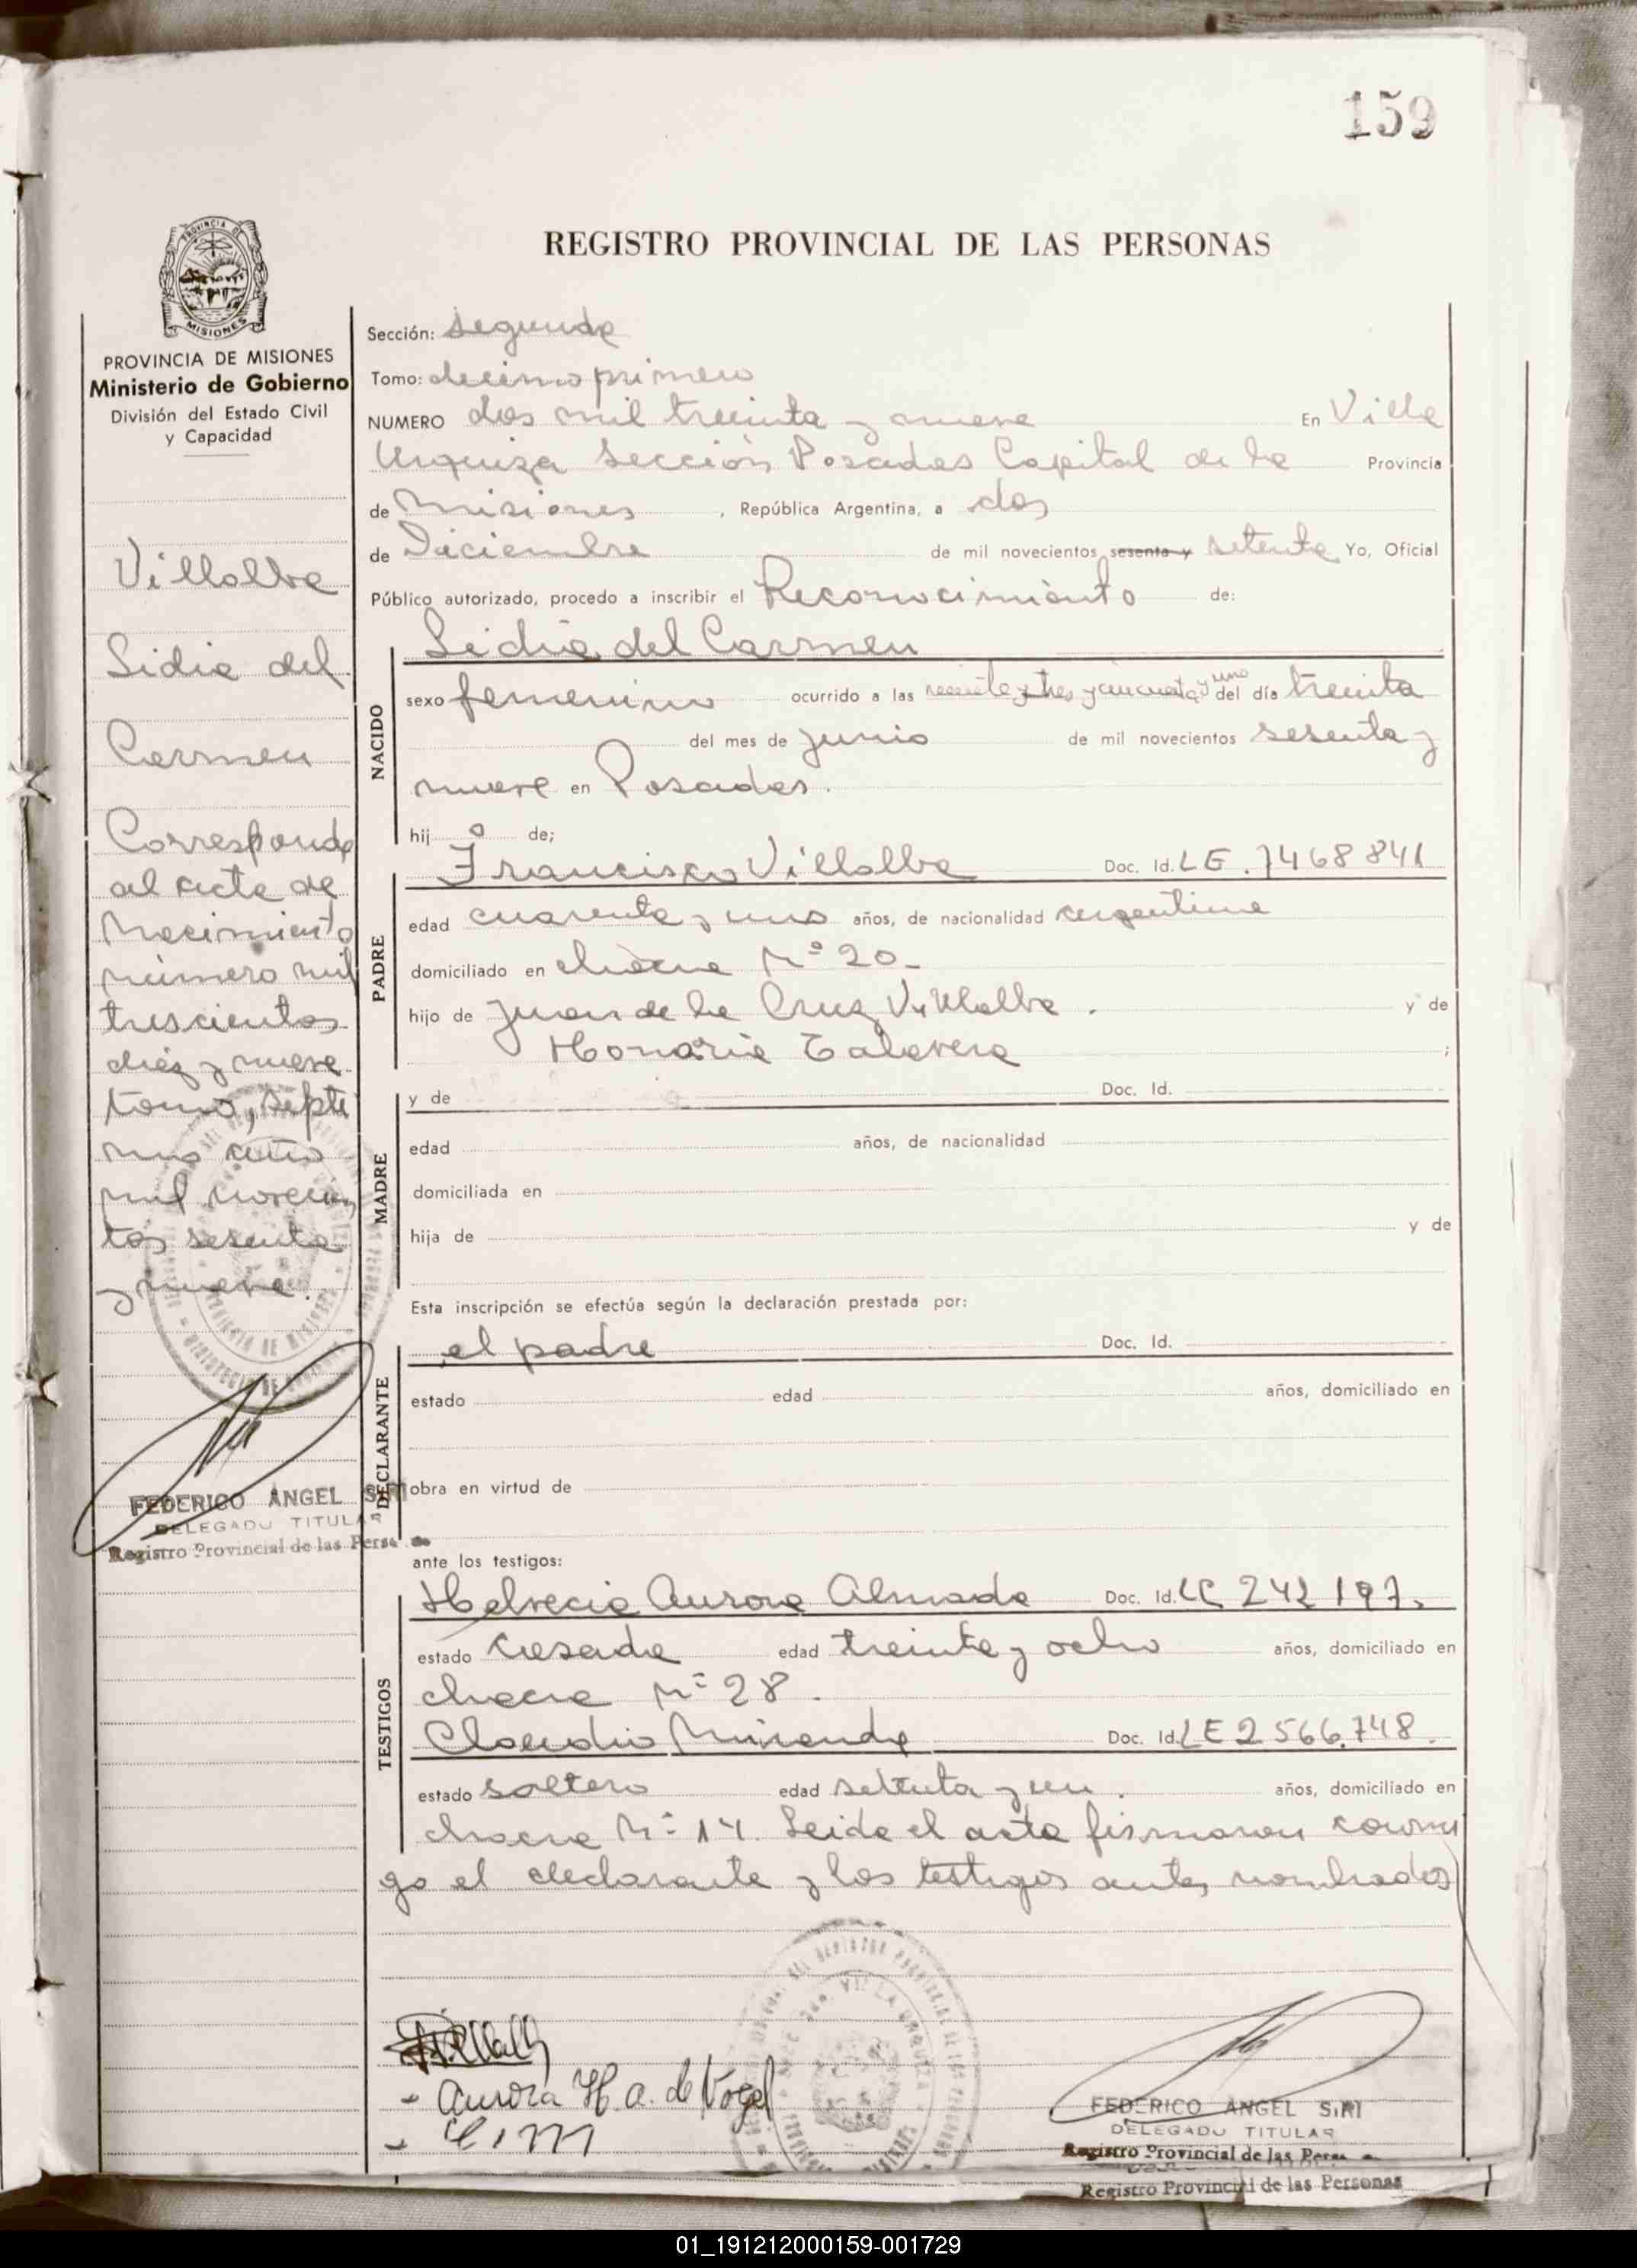 159
REGISTRO PROVINCIAL DE LAS PERSONAS
PROVINCIA DE MISIONES
Ministerio de Gobierno
División del Estado Civil
y Capacidad
Villalba
Lidia del
Carmen
Corresponde
al acta de
Nacimiento
número mil
trescientos
diez y nueve
tomo, septi
mo año
mil novecien
tos sesenta
y nueve.
FEDERICO ANGEL SIRI
DELEGADO TITULAR
Registro Provincial de las Perso
Sección: segunda
Tomo: decimo primero
NUMERO dos mil treinta y nueve En Villa
Urquiza Sección Posadas Capital de la Provincia
de Misiones , República Argentina, a dos
de Diciembre de mil novecientos sesenta y setenta Yo, Oficial
Público autorizado, procedo a inscribir el Reconocimiento de:
NACIDO
Lidia del Carmen
sexo femenino ocurrido a las veinte y tres y cincuenta y uno del día treinta
del mes de junio de mil novecientos sesenta y
nueve en Posadas.
hij a de;
PADRE
Francisco Villalba Doc. Id. LE. 7468841
edad cuarenta y uno años, de nacionalidad argentina
domiciliado en chacra Nº 20-
hijo de Juan de la Cruz Villalba . y de
Honaria Talavera ;
MADRE
y de Doc. Id.
edad años, de nacionalidad
domiciliada en
hija de y de
Esta inscripción se efectúa según la declaración prestada por:
DECLARANTE
el padre Doc. Id.
estado edad años, domiciliado en
obra en virtud de
ante los testigos:
TESTIGOS
Helvecia Aurora Almada Doc. Id. LC 242197.
estado casada edad treinta y ocho años, domiciliado en
chacra Nº 28.
Claudio Miranda Doc. Id. LE 2566.748.
estado soltero edad setenta y un . años, domiciliado en
chacra Nº 14. Leida el acta firmaron conmi
go el declarante y los testigos antes nombrados
Aurora H. a. de Vogel
FEDERICO ANGEL SIRI
DELEGADO TITULAR
Registro Provincial de las Perso
Registro Provincial de las Personas
01_191212000159-001729